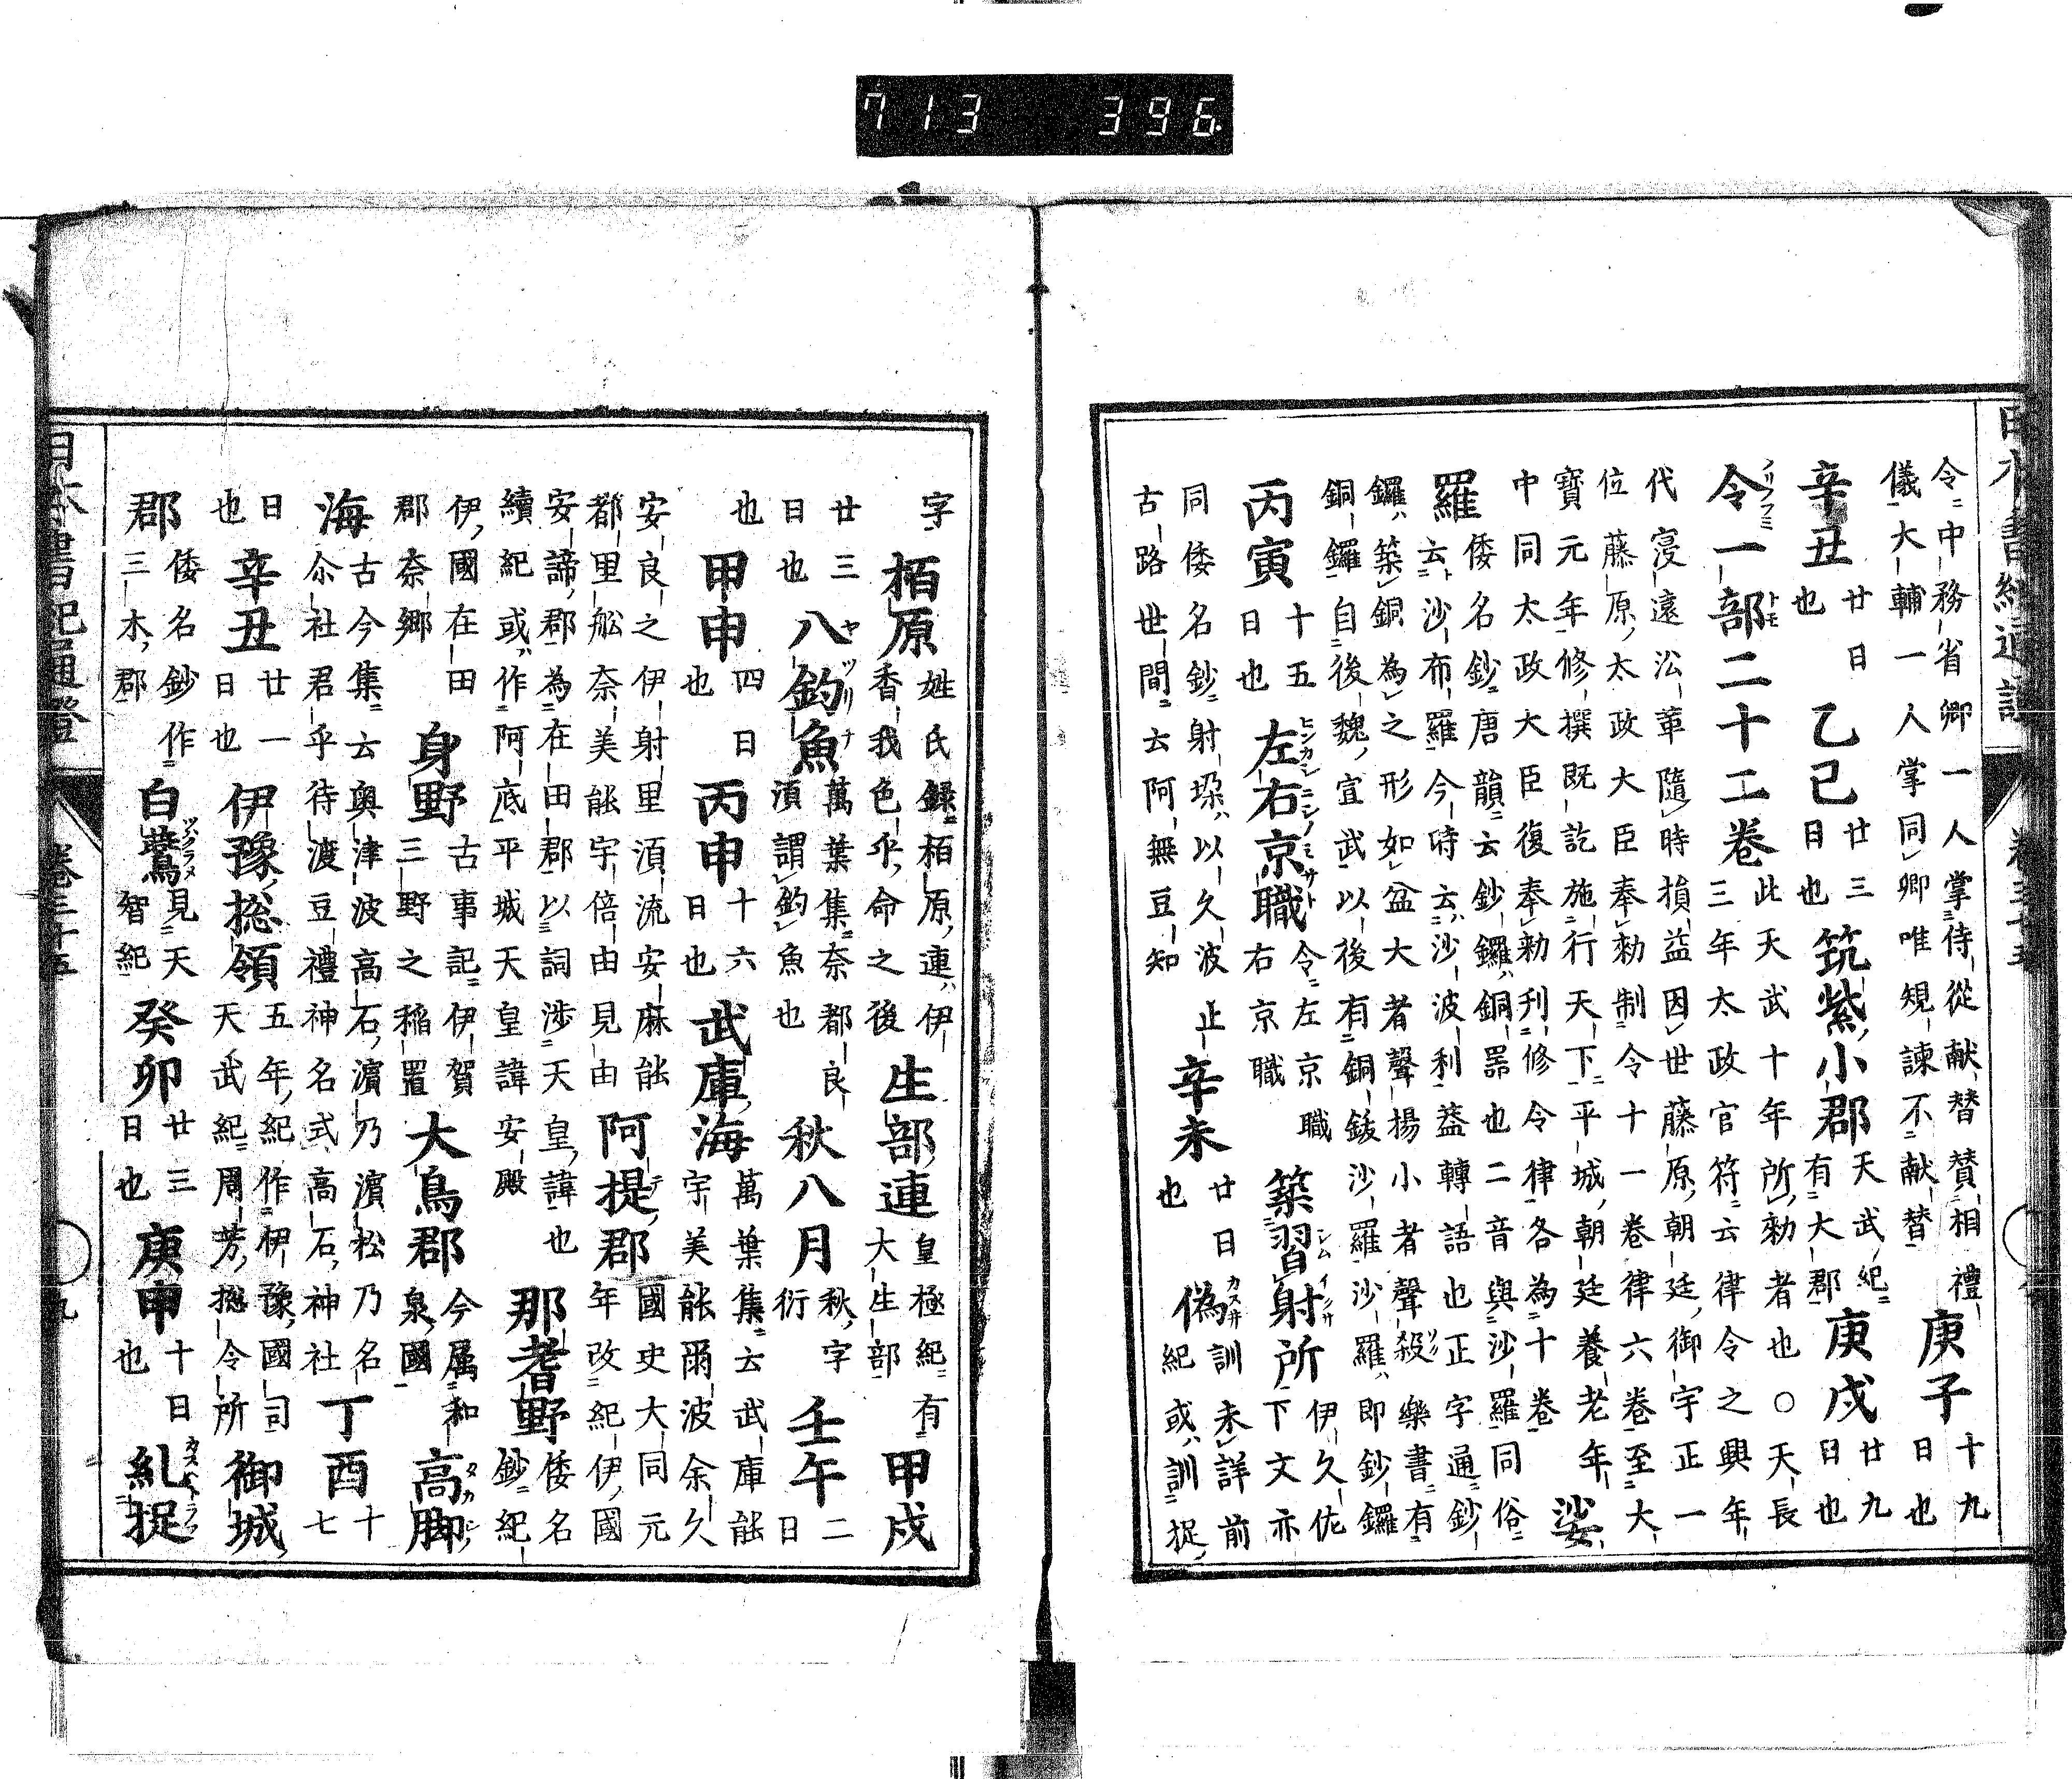 日本書紀通證 卷三十五
令中務省卿一人掌侍從献替賛相禮
儀大輔一人掌同卿唯規諫不献替 庚子 十九日也
辛丑 廿日也 乙巳 廿三日也 筑紫小郡 天武紀有大郡 庚戌 廿九日也
令一部二十二卷 此天武十年所勅者也〇天長三年太政官符云律令之興年
代寖遠沿革隨時損益因世藤原朝廷御宇正一
位藤原太政大臣奉勅制令十一卷律六卷至大
寶元年修撰既訖施行天下平城朝廷養老年
中同太政大臣復奉勅刋修令律各為十卷 娑
羅 倭名鈔唐韻云鈔鑼銅噐也二音與沙羅同俗
云沙布羅今時云沙波利益轉語也正字通鈔
鑼築銅為之形如盆大者聲揚小者聲殺樂書有
銅鑼自後魏宣武以後有銅鈸沙羅沙羅即鈔鑼
丙寅 十五日也 左右京職 令左京職右京職 築習射所 伊久佐下文亦
同倭名鈔射垜以久波止
古路世間云阿無豆知 辛未 廿日也 偽 訓未詳前紀或訓捉
字 栢原 姓氏録栢原連伊香我色乎命之後 生部連 皇極紀有大生部 甲戌
廿三日也 八釣魚 萬葉集奈都良湏謂釣魚也 秋八月 秋字衍 壬午 二日
也 甲申 四日也 丙申 十六日也 武庫海 萬葉集云武庫能宇美能爾波余久
安良之伊射里湏流安麻能
都里舩奈美能宇倍由見由 阿提郡 國史大同元年改紀伊國
安諦郡為在田郡以詞渉天皇諱也
續紀或作阿底平城天皇諱安殿 那耆野 倭名鈔紀
伊國在田郡奈郷 身野 古事記伊賀三野之稲置 大鳥郡 今属和泉國 高脚
海 古今集云奥津波高石濵乃濵松乃名
尒社君乎待渡豆禮神名式高石神社 丁酉 十七
日也 辛丑 廿一日也 伊豫捴領 五年紀作伊豫國司天武紀周芳捴令所 御城
郡 倭名鈔作三木郡 白鷰 見天智紀 癸卯 廿三日也 庚申 十日也 糺捉
日本書紀通證 卷三十五 九
713 396